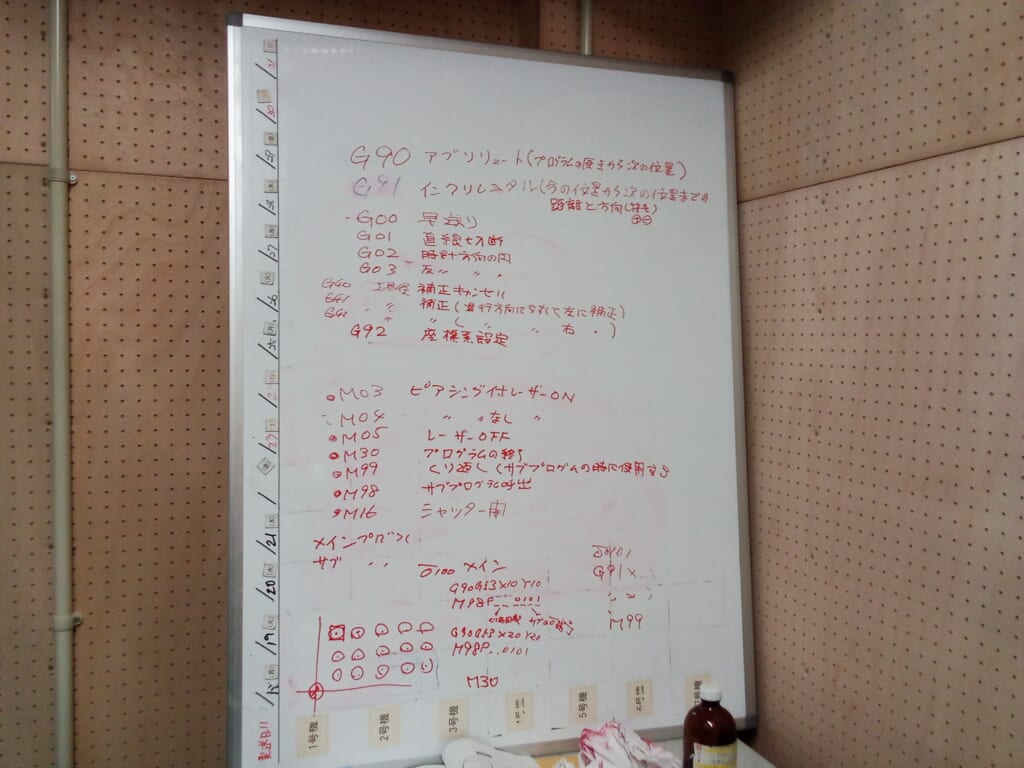 G90 アブソリュート(プログラムの原点から次の位置)
G91 インクリメンタル(今の位置から次の位置までの
距離と方向(符号)
⊕⊖
G00 早送り
G01 直線切断
G02 時計方向の円
G03 反 〃 〃 〃
G40 工具径 補正キャンセル
G41 〃 補正(進行方向に対して左に補正)
G42 〃 〃 ( 〃 〃 右 〃 )
G92 座標系設定
M03 ピアシング付レーザーON
M04 〃 〃なし 〃
M05 レーザーOFF
M30 プログラムの終了
M99 くり返し(サブプログラムの時に使用する
M98 サブプログラム呼出
M16 シャッター開
メインプログラム
サブ 〃 〃
O100 メイン
G90G53X10Y10
M98P 0101
G90G53X20Y20
M98P 0101
M30
O0101
G91X
M99
1号機
2号機
3号機
5号機
6号機
/19
/20
/21
/
/23
/25
/26
/27
/28
/29
/30
/31